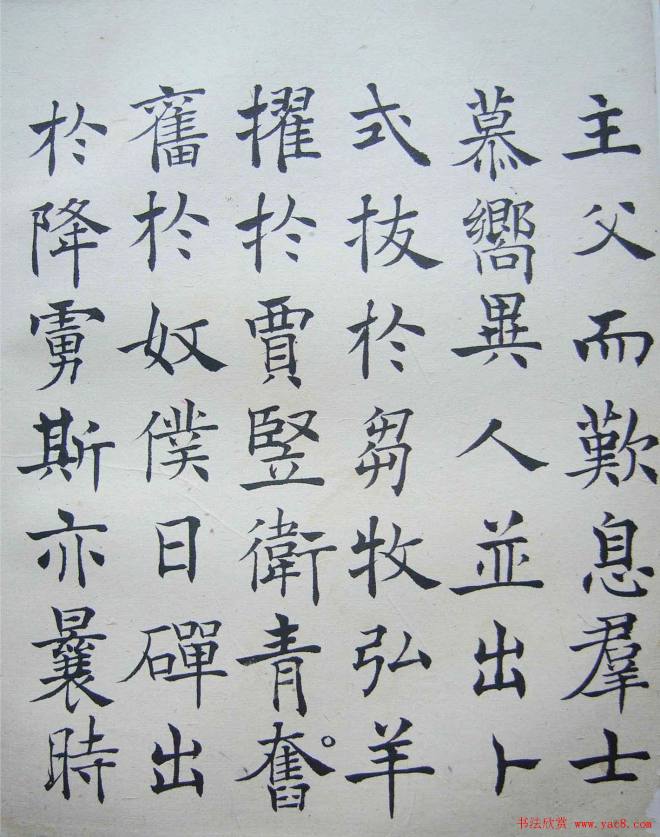 主父而歎息羣士
慕嚮異人並出卜
式拔於芻牧弘羊
擢於賈豎衛青奮。
奮於奴僕日磾出
於降虜斯亦曩時
书法欣赏 www.yac8.com